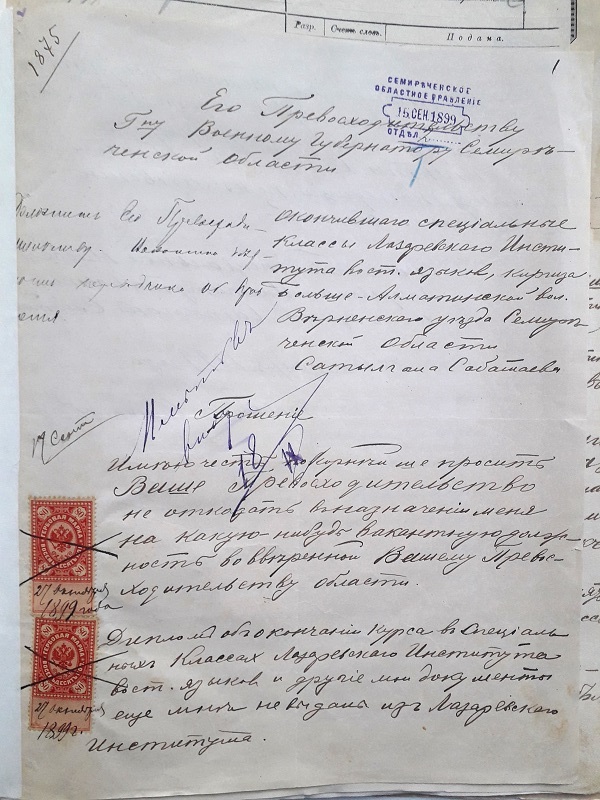 Разр.
Счетн. слов.
Подана.
1875
1
СЕМИРѢЧЕНСКОЕ
ОБЛАСТНОЕ ПРАВЛЕНІЕ
15 СЕН. 1899
ОТДѢЛ
Его Превосходительству
Гну Военному Губернатору Семирѣ-
ченской Области
окончившаго спеціальные
Классы Лазаревскаго Инсти-
тута вост. языков, киргиза
Больше-Алматинской вол.
Вѣрненскаго уѣзда Семирѣ-
ченской Области
Сатылгана Сабатаева
Его Превосходи-
17 Сент
Прошеніе
Имѣю честь покорнѣйше просить
Ваше Превосходительство
не отказать в назначеніи меня
на какую-нибудь вакантную долж-
ность во ввѣренной Вашему Превос-
ходительству области.
80
80
27 октября
1899 года
Диплом об окончаніи курса в Спеціаль-
ных Классах Лазаревскаго Института
вост. языков и другіе мои документы
еще мнѣ не выданы из Лазаревскаго
Института.
80
80
27 октября
1899 г.